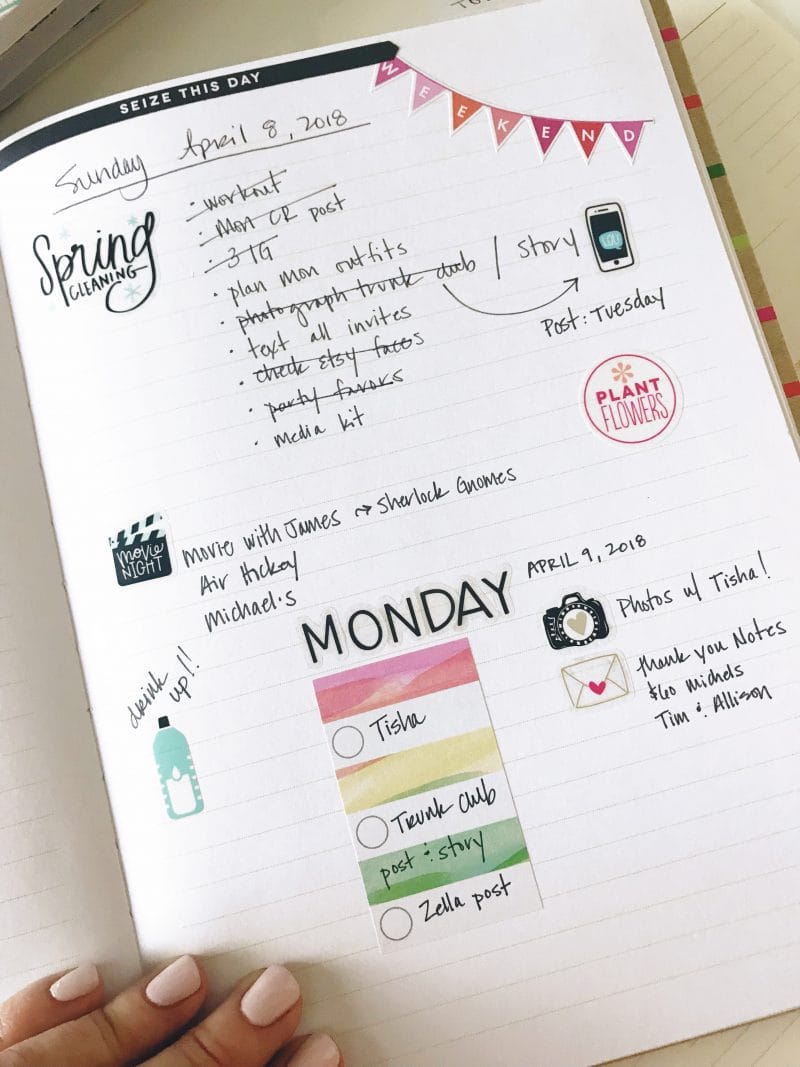 SEIZE THIS DAY
WEEKEND
Sunday April 8, 2018
Spring
CLEANING
· workout
· Mon CR post
· 3 IG
· plan mon outfits
· photograph trunk club / story
YOU
Post: Tuesday
· text all invites
· check Etsy
· party favors
· media kit
PLANT
FLOWERS
movie
NIGHT
Movie with James → Sherlock Gnomes
Air Hockey
Michael's
MONDAY
APRIL 9, 2018
Photos w/ Tisha!
Thank you Notes
Tim & Allison
drink
up!!
Tisha
Trunk Club
post & story
Zella post